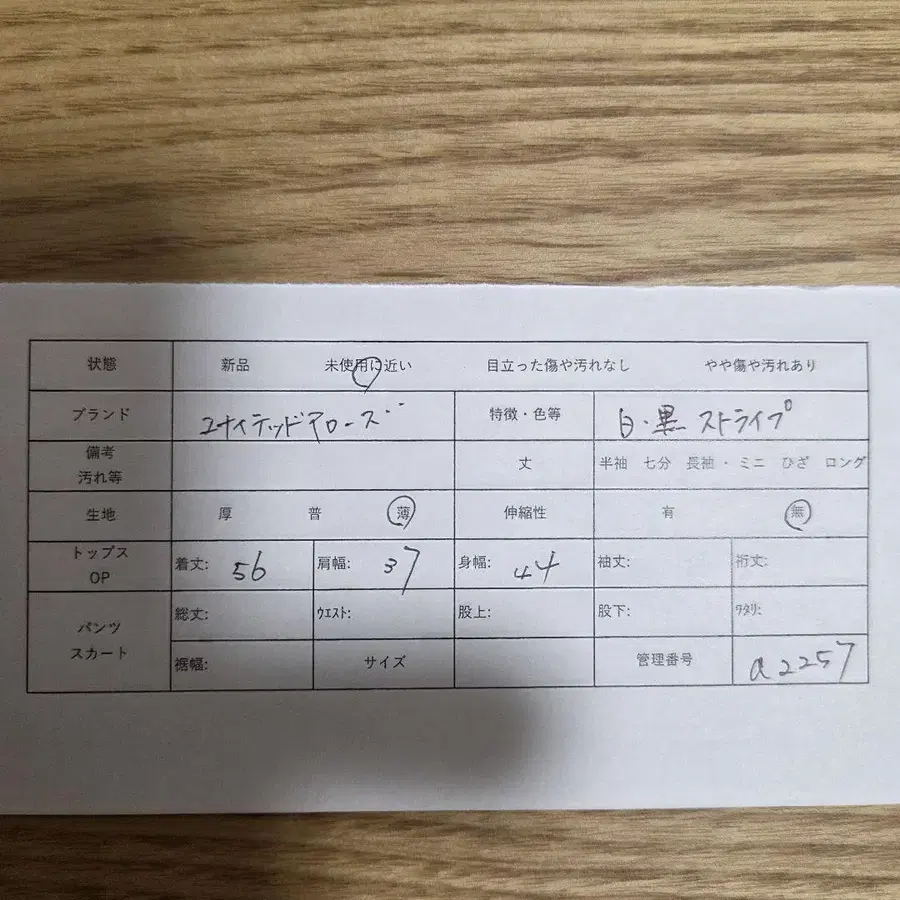 状態 新品 未使用に近い 目立った傷や汚れなし やや傷や汚れあり
ブランド ユナイテッドアローズ 特徴・色等 白・黒 ストライプ
備考
汚れ等 丈 半袖 七分 長袖・ミニ ひざ ロング
生地 厚 普 薄 伸縮性 有 無
トップス
OP 着丈: 56 肩幅: 37 身幅: 44 袖丈: 裄丈:
パンツ
スカート 総丈: ウエスト: 股上: 股下: ワタリ:
裾幅: サイズ 管理番号 a2257